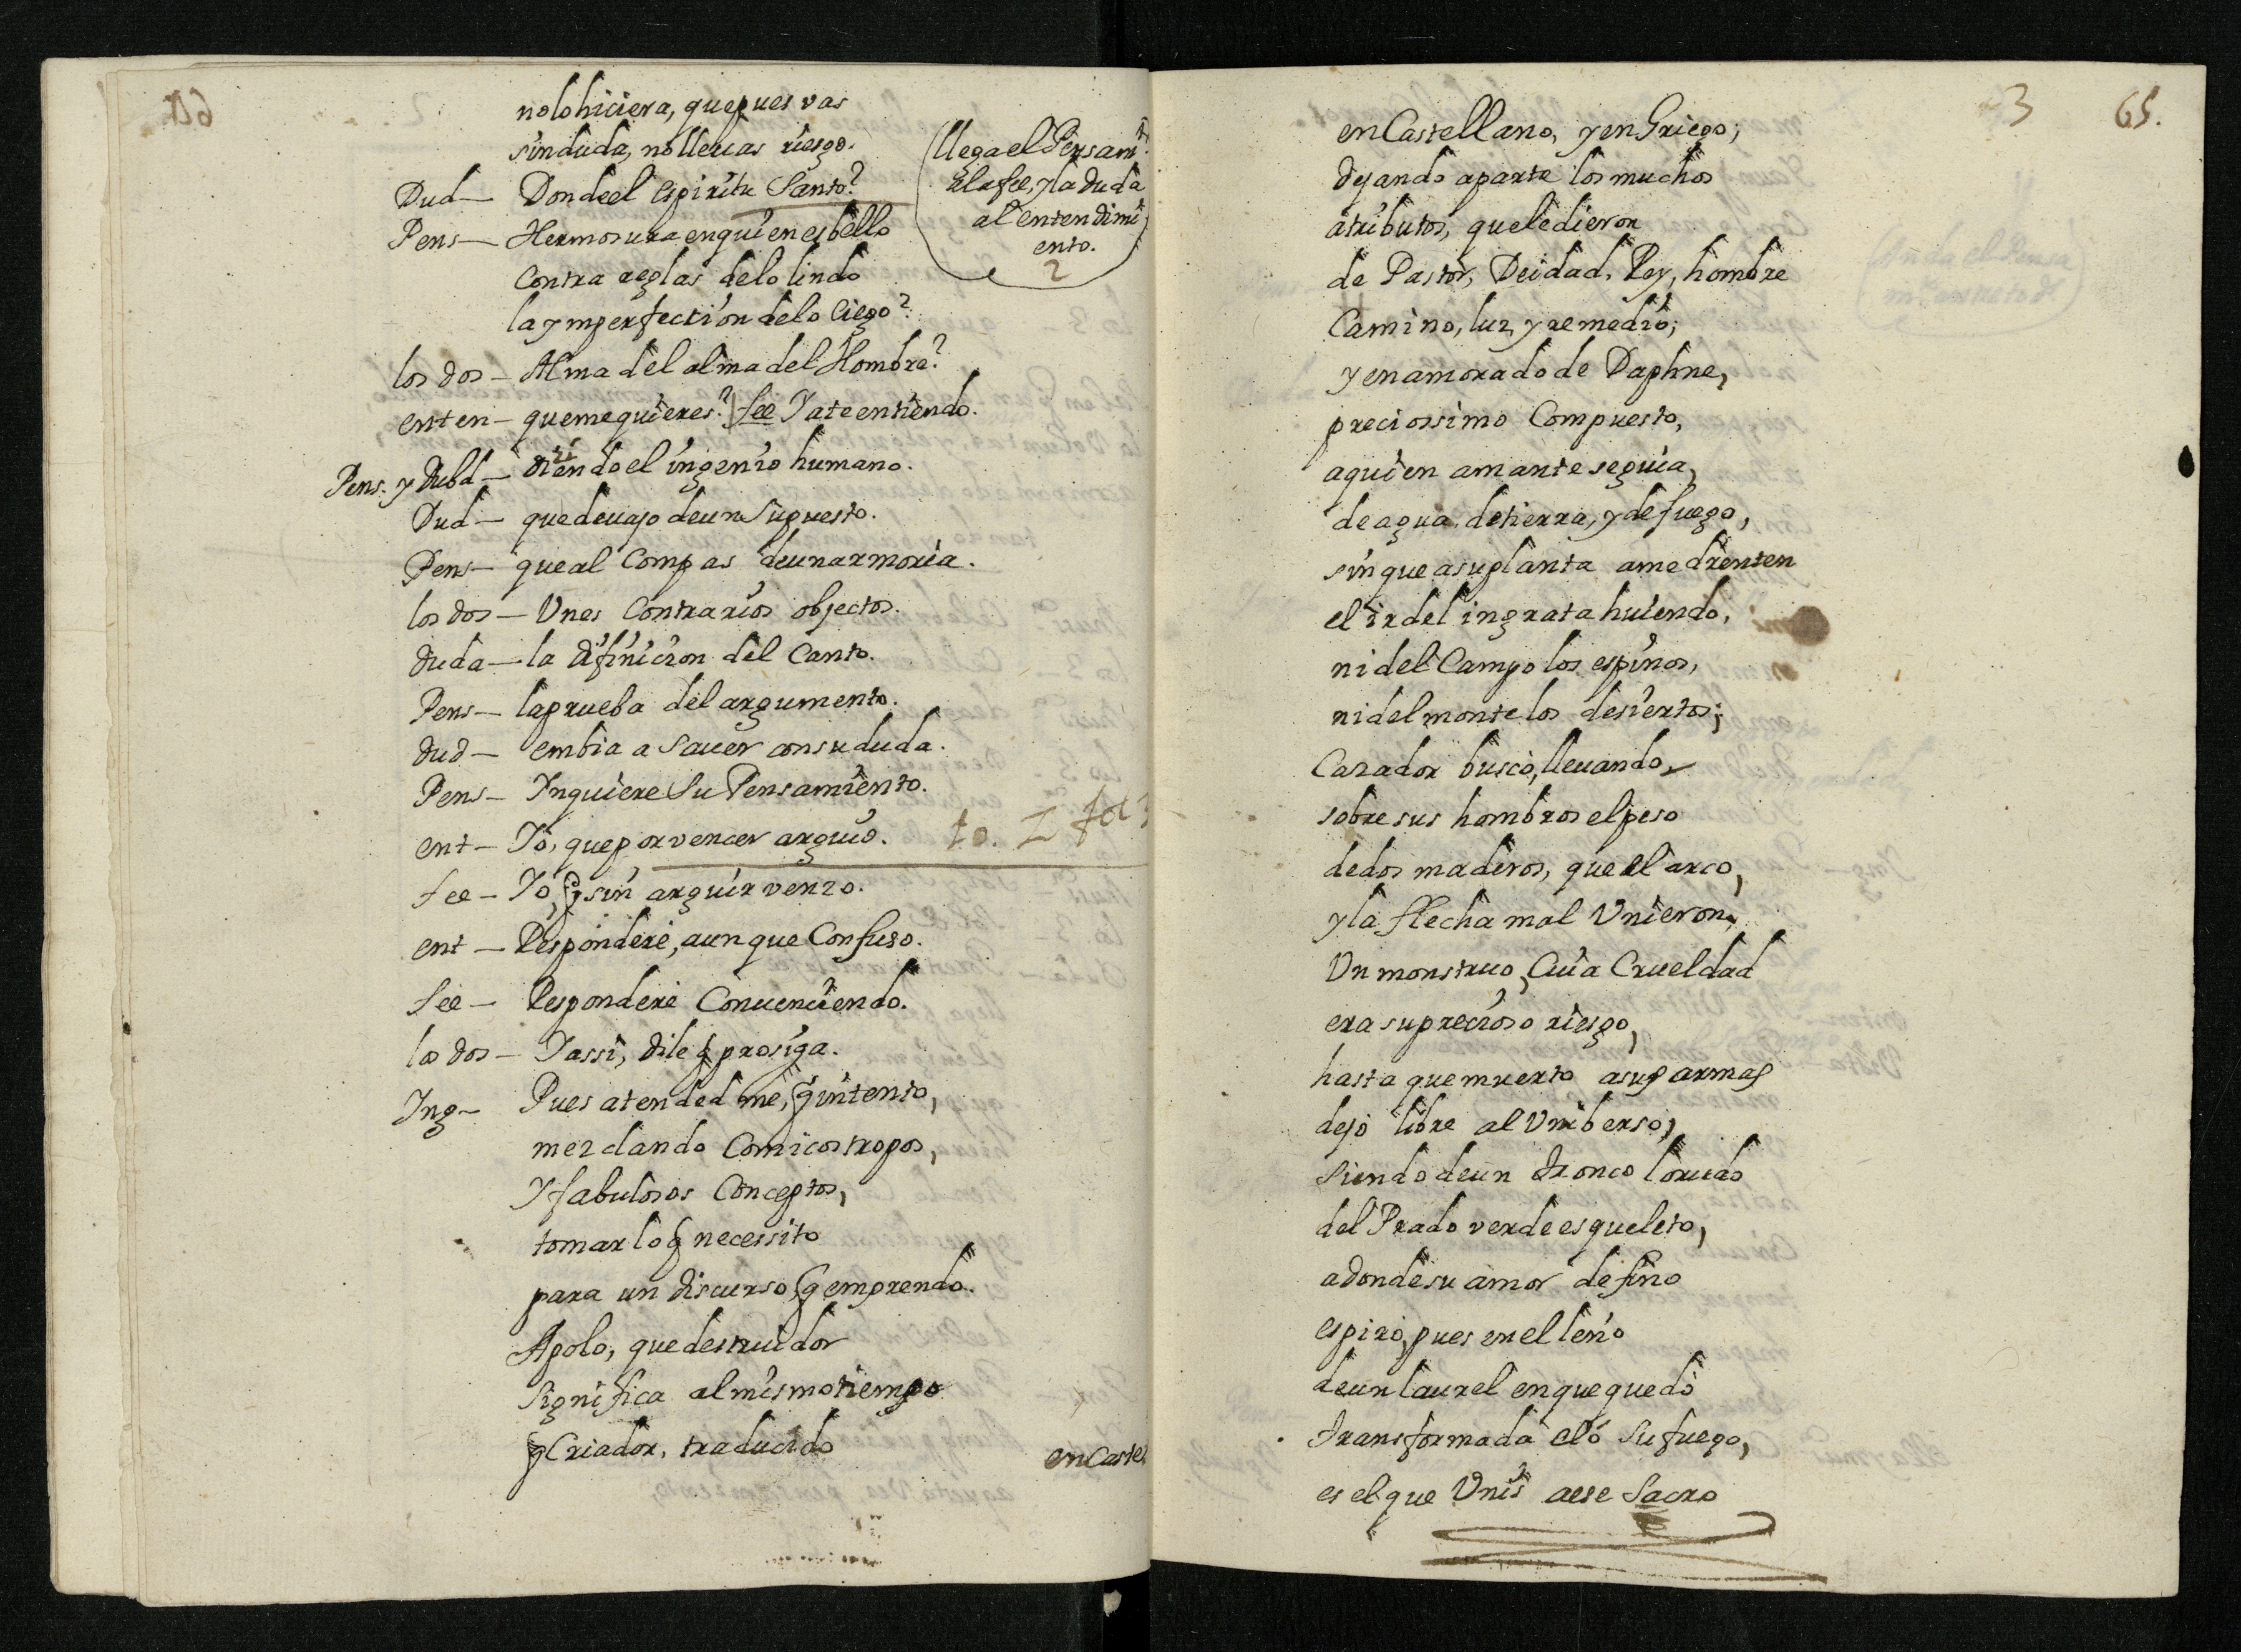 no lo hiciera, que pues vas
sin duda, no lleuas riesgo.
(llega el Pensamto.
a la fee, y la duda
al entendimi
ento.
2
Dud— Donde el espiritu Santo?
Pens— Hermosura en quien es bello
Contra reglas de lo lindo
la ymperfeccion de lo Ciego?
los dos— Alma del alma del Hombre?
enten— que me quieres? fee Ya te entiendo.
Pens. y Dubd— diciendo el ingenio humano.
Dud— que deuajo de un Supuesto.
Pens— que al Compas de un armonia.
los dos— Unes Contrarios objectos.
duda— la difinicion del Canto.
Pens— la prueba del argumento.
dud— embia a Sauer con su duda.
Pens— Inquiere Su Pensamiento.
ent— Yo, que por vencer arguio.
fee— Yo, q sin arguir venzo.
ent— Responderè, aunque Confuso.
fee— Responderè Conuenciendo.
los dos— Y assi, dile q prosiga.
Ing— Pues atended me, q intento,
mezclando Comicos tropos,
Y fabulosos Conceptos,
tomar lo q necessito
para un discurso q emprendo.
Apolo, que destruidor
Significa al mismo tiempo
q Criador, traducido
en Caste
3 65.
en Castellano, y en Griego;
dejando aparte los muchos
atributos, que le dieron
de Pastor, Deidad, Rey, hombre
Camino, luz, y remedio;
y enamorado de Daphne,
preciossimo Compuesto,
a quien amante seguia,
de agua, de tierra, y de fuego,
sin que a su planta amedrenten
el ir del ingrata huiendo,
ni del Campo los espinos,
ni del monte los desiertos;
Cazador buscò, lleuando,
sobre sus hombros el peso
de dos maderos, que el arco,
y la flecha mal Unieron,
Un monstruo, Cuia Crueldad
era su precioso riesgo,
hasta que muerto a sus armas
dejò libre al Uniberso;
Siendo de un tronco loruas
del Prado verde esqueleto,
a donde su amor de fino
espirò, pues en el leño
de un laurel en que quedò
transformada elò Su fuego,
es el que Uniò a ese Sacro